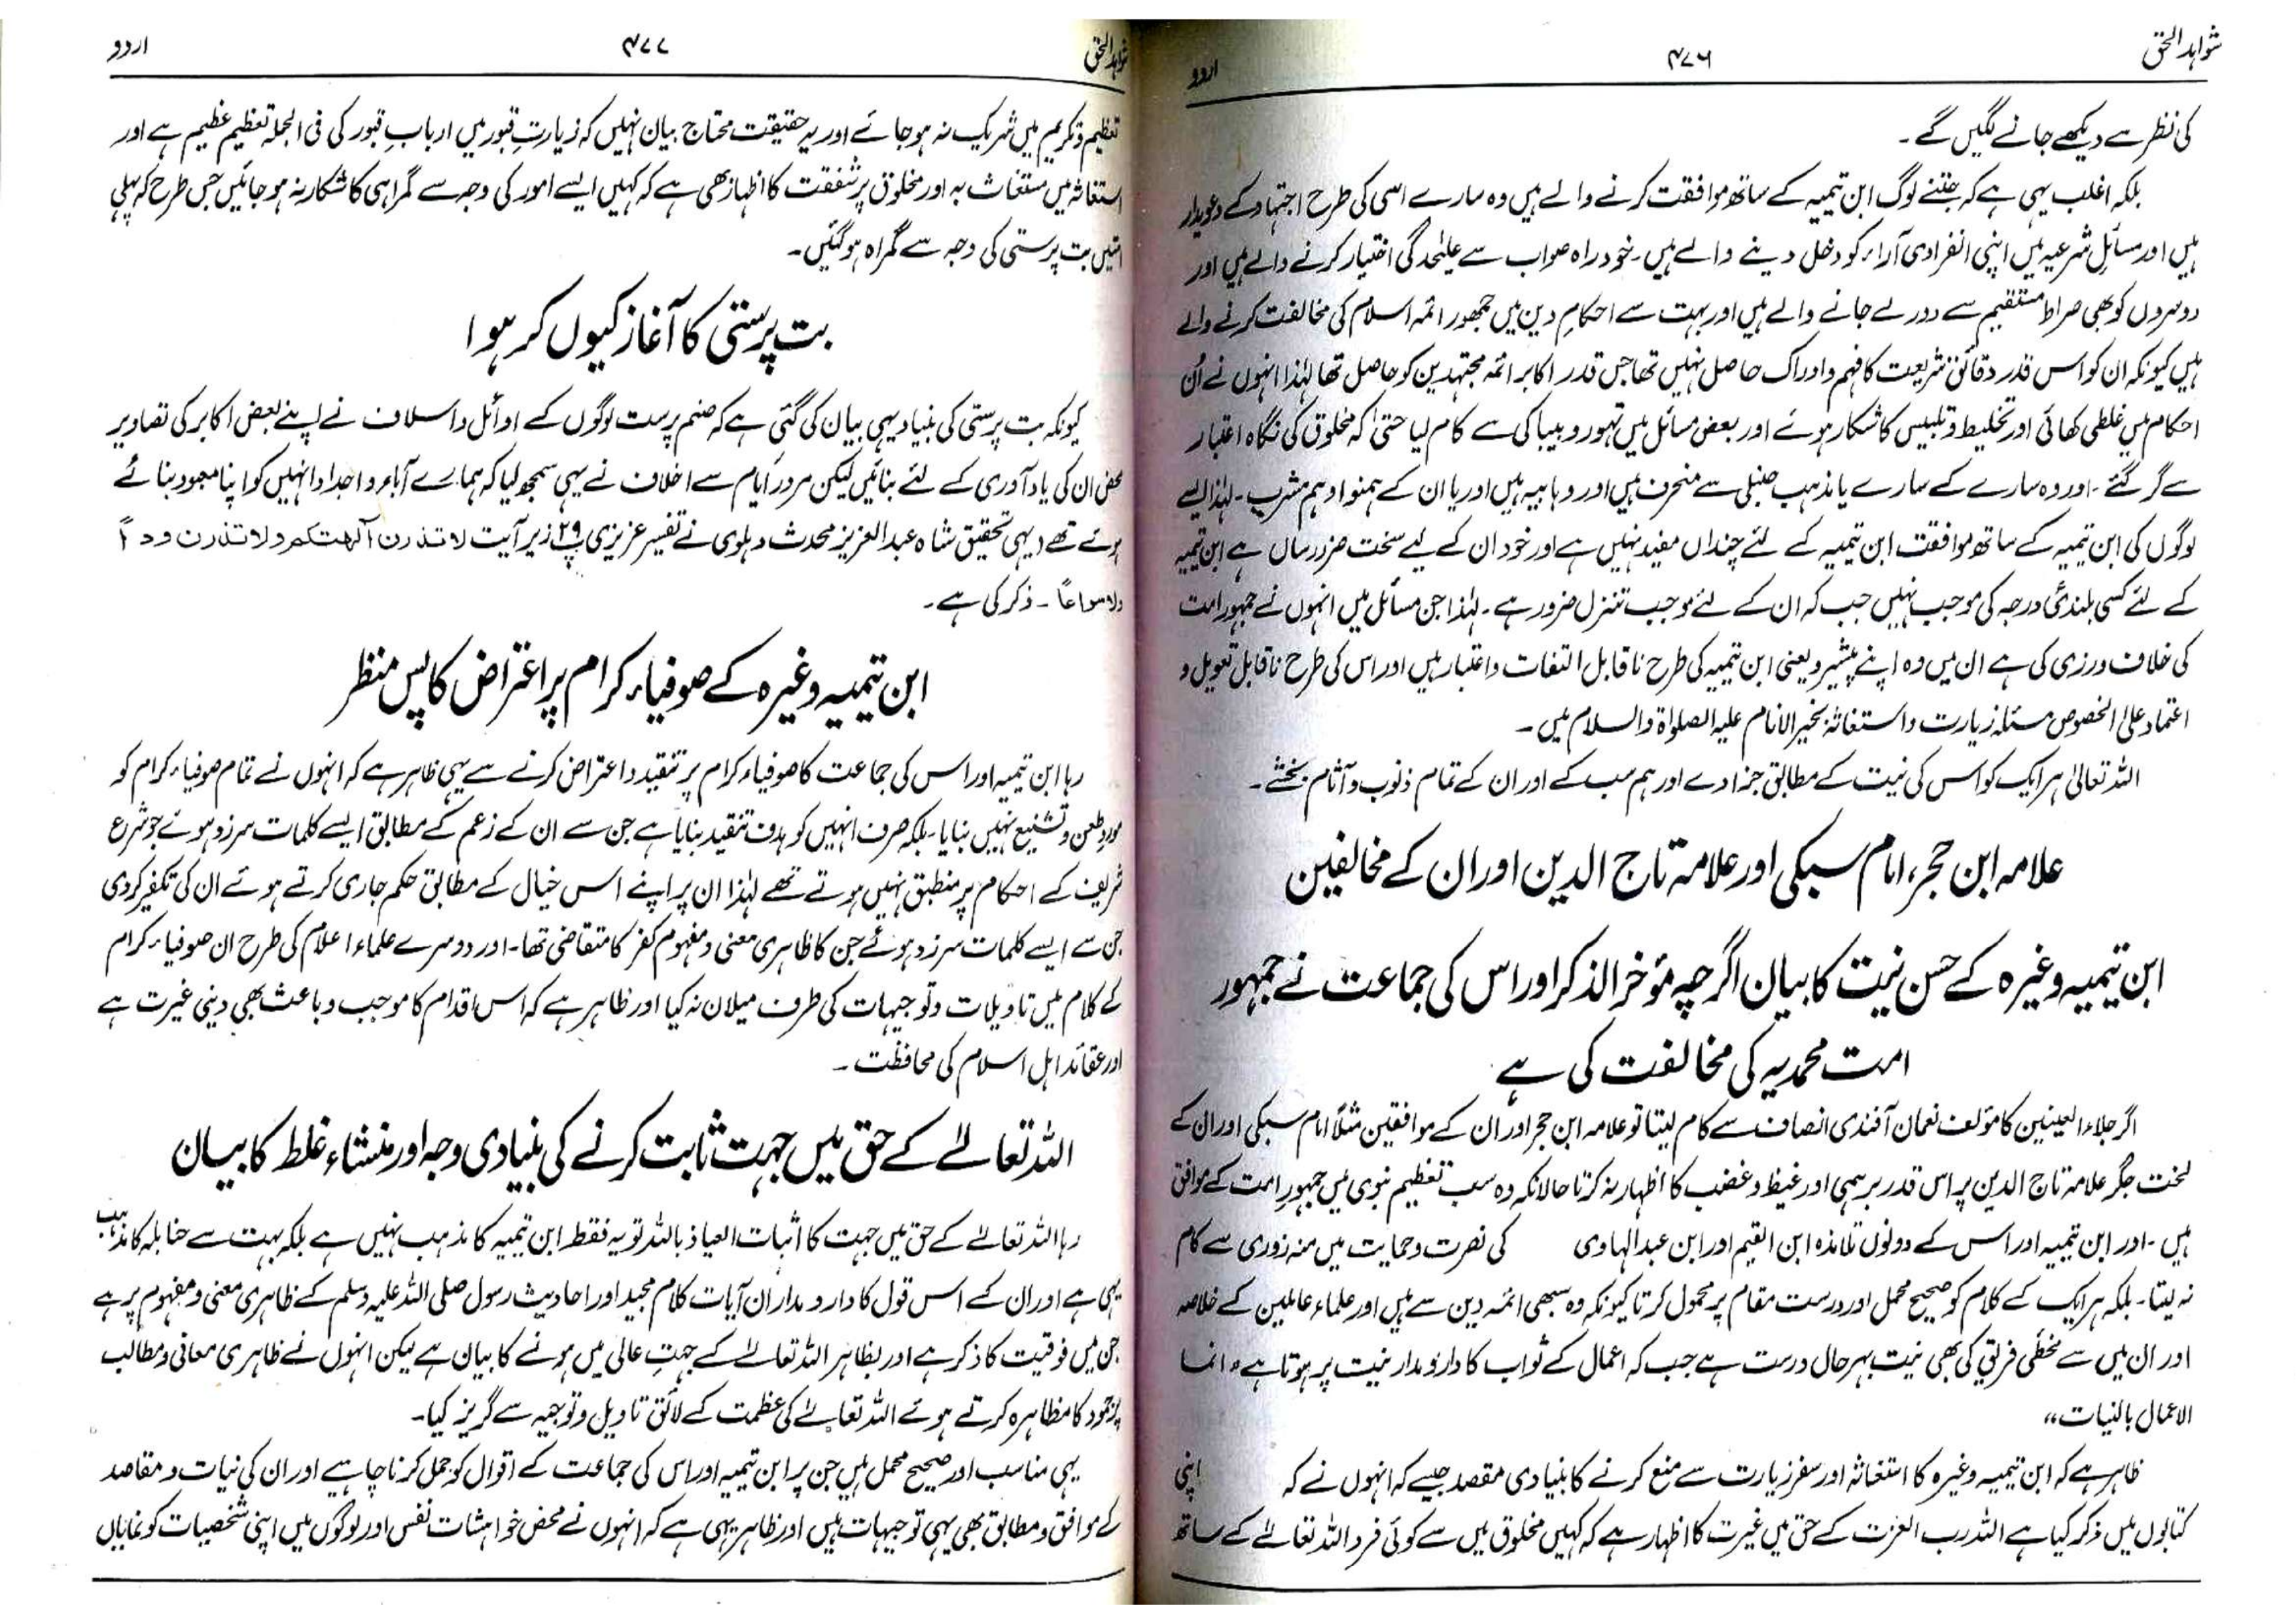 شواہد الحق
۴۷۶
اردو
کی نظر سے دیکھے جانے لگیں گے۔
بلکہ اغلب یہی ہے کہ جتنے لوگ ابن تیمیہ کے ساتھ موافقت کرنے والے ہیں وہ سارے اسی کی طرح اجتہاد کے دعویدار
ہیں اور مسائل شرعیہ میں اپنی انفرادی آراء کو دخل دینے والے ہیں۔ خود راہ صواب سے علیحدگی اختیار کرنے والے ہیں اور
دوسروں کو بھی صراط مستقیم سے دور لے جانے والے ہیں اور بہت سے احکام دین میں جمہور ائمہ اسلام کی مخالفت کرنے والے
ہیں کیونکہ ان کو اس قدر دقائق شریعت کا فہم و ادراک حاصل نہیں تھا جس قدر اکابر ائمہ مجتہدین کو حاصل تھا لہٰذا انہوں نے اُن
احکام میں غلطی کھائی اور تخلیط و تلبیس کا شکار ہوئے اور بعض مسائل میں تہور و بیباکی سے کام لیا حتیٰ کہ مخلوق کی نگاہ اعتبار
سے گر گئے۔ اور وہ سارے کے سارے یا مذہب حنبلی سے منحرف ہیں اور وہابیہ ہیں اور یا ان کے ہمنوا و ہم مشرب۔ لہٰذا ایسے
لوگوں کی ابن تیمیہ کے ساتھ موافقت ابن تیمیہ کے لئے چنداں مفید نہیں ہے اور خود ان کے لیے سخت ضرر رساں ہے ابن تیمیہ
کے لئے کسی بلندئ درجہ کی موجب نہیں جب کہ ان کے لئے موجب تنزل ضرور ہے۔ لہٰذا جن مسائل میں انہوں نے جمہور امت
کی خلاف ورزی کی ہے ان میں وہ اپنے پیشیرو یعنی ابن تیمیہ کی طرح ناقابل التفات و اعتبار ہیں اور اس کی طرح ناقابل تعویل و
اعتماد علی الخصوص مسئلہ زیارت و استغاثہ بخیر الانام علیہ الصلواۃ والسلام میں۔
اللہ تعالیٰ ہر ایک کو اس کی نیت کے مطابق جزا دے اور ہم سب کے اور ان کے تمام ذنوب و آثام بخشے۔
علامہ ابن حجر، امام سبکی اور علامہ تاج الدین اور ان کے مخالفین
ابن تیمیہ وغیرہ کے حسن نیت کا بیان اگرچہ مؤخر الذکر اور اس کی جماعت نے جمہور
امت محمدیہ کی مخالفت کی ہے
اگر جلاء العینین کا مؤلف نعمان آفندی انصاف سے کام لیتا تو علامہ ابن حجر اور ان کے موافقین مثلاً امام سبکی اور ان کے
لخت جگر علامہ تاج الدین پر اس قدر برہمی اور غیظ و غضب کا اظہار نہ کرتا حالانکہ وہ سب تعظیم نبوی میں جمہور امت کے موافق
ہیں۔ اور ابن تیمیہ اور اس کے دونوں تلامذہ ابن القیم اور ابن عبدالہادی کی نصرت و حمایت میں منہ زوری سے کام
نہ لیتا۔ بلکہ ہر ایک کے کلام کو صحیح محمل اور درست مقام پر محمول کرتا کیونکہ وہ سبھی ائمہ دین سے ہیں اور علماء عاملین کے خلاصہ
اور ان میں سے مخطئی فریق کی بھی نیت بہرحال درست ہے جب کہ اعمال کے ثواب کا دارومدار نیت پر ہوتا ہے ”انما
الاعمال بالنیات“
ظاہر ہے کہ ابن تیمیہ وغیرہ کا استغاثہ اور سفر زیارت سے منع کرنے کا بنیادی مقصد جیسے کہ انہوں نے کہ اپنی
کتابوں میں ذکر کیا ہے اللہ رب العزت کے حق میں غیرت کا اظہار ہے کہ کہیں مخلوق میں سے کوئی فرد اللہ تعالےٰ کے ساتھ
شواہد الحق
۴۷۷
اردو
تعظیم و تکریم میں شریک نہ ہو جائے اور یہ حقیقت محتاج بیان نہیں کہ زیارتِ قبور میں اربابِ قبور کی فی الجملہ تعظیم عظیم ہے اور
استغاثہ میں مستغاث بہ اور مخلوق پر شفقت کا اظہار بھی ہے کہ کہیں ایسے امور کی وجہ سے گمراہی کا شکار نہ ہو جائیں جس طرح کہ پہلی
امتیں بت پرستی کی وجہ سے گمراہ ہو گئیں۔
بت پرستی کا آغاز کیوں کر ہوا
کیونکہ بت پرستی کی بنیاد یہی بیان کی گئی ہے کہ صنم پرست لوگوں کے اوائل و اسلاف نے اپنے بعض اکابر کی تصاویر
محض ان کی یاد آوری کے لئے بنائیں لیکن مرور ایام سے اخلاف نے یہی سمجھ لیا کہ ہمارے آباء و اجداد انہیں کو اپنا معبود بنائے
ہوئے تھے (یہی تحقیق شاہ عبدالعزیز محدث دہلوی نے تفسیر عزیزی پ۲۹ زیر آیت لا تذرن آلھتکم ولا تذرن وداً
ولا سواعاً۔ ذکر کی ہے۔
ابن تیمیہ وغیرہ کے صوفیاء کرام پر اعتراض کا پس منظر
رہا ابن تیمیہ اور اس کی جماعت کا صوفیاء کرام پر تنقید و اعتراض کرنے سے یہی ظاہر ہے کہ انہوں نے تمام صوفیاء کرام کو
مورد طعن و تشنیع نہیں بنایا۔ بلکہ صرف انہیں کو ہدف تنقید بنایا ہے جن سے ان کے زعم کے مطابق ایسے کلمات سرزد ہوئے جو شرع
شریف کے احکام پر منطبق نہیں ہوتے تھے لہٰذا ان پر اپنے اس خیال کے مطابق حکم جاری کرتے ہوئے ان کی تکفیر کردی
جن سے ایسے کلمات سرزد ہوئے جن کا ظاہری معنی و مفہوم کفر کا متقاضی تھا۔ اور دوسرے علماء اعلام کی طرح ان صوفیاء کرام
کے کلام میں تاویلات و توجیہات کی طرف میلان نہ کیا اور ظاہر ہے کہ اس اقدام کا موجب و باعث بھی دینی غیرت ہے
اور عقائد اہل اسلام کی محافظت۔
اللہ تعالےٰ کے حق میں جہت ثابت کرنے کی بنیادی وجہ اور منشاء غلط کا بیان
رہا اللہ تعالےٰ کے حق میں جہت کا اثبات العیاذ باللہ تو یہ فقط ابن تیمیہ کا مذہب نہیں ہے بلکہ بہت سے حنابلہ کا مذہب
یہی ہے اور ان کے اس قول کا دارومدار ان آیات کلام مجید اور احادیث رسول صلی اللہ علیہ وسلم کے ظاہری معنی و مفہوم پر ہے
جن میں فوقیت کا ذکر ہے اور بظاہر اللہ تعالےٰ کے جہتِ عالی میں ہونے کا بیان ہے لیکن انہوں نے ظاہری معانی و مطالب
پر جمود کا مظاہرہ کرتے ہوئے اللہ تعالےٰ کی عظمت کے لائق تاویل و توجیہ سے گریز کیا۔
یہی مناسب اور صحیح محمل ہیں جن پر ابن تیمیہ اور اس کی جماعت کے اقوال کو حمل کرنا چاہیے اور ان کی نیات و مقاصد
کے موافق و مطابق بھی یہی توجیہات ہیں اور ظاہر یہی ہے کہ انہوں نے محض خواہشات نفس اور لوگوں میں اپنی شخصیات کو نمایاں